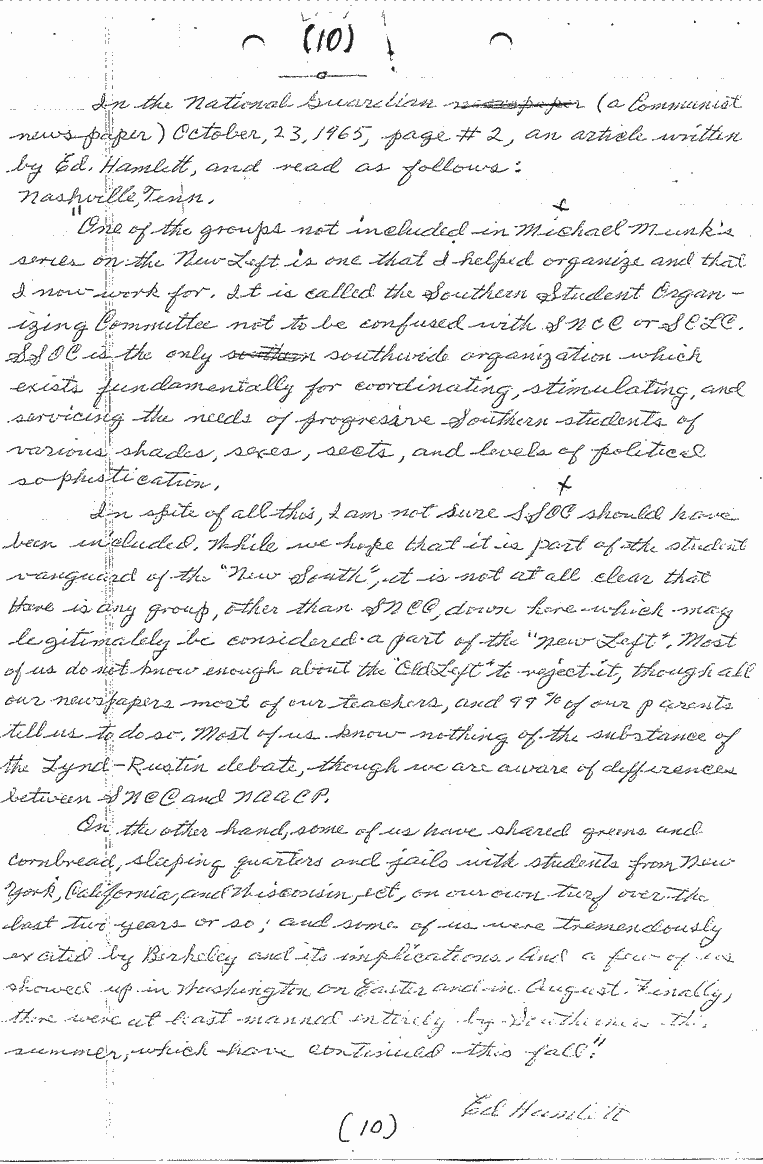 (10)
In the National Guardian newspaper (a Communist
newspaper) October, 23, 1965, page # 2, an article written
by Ed. Hamlett, and read as follows:
Nashville, Tenn.
"One of the groups not included in Michael Munk's
series on the New Left is one that I helped organize and that
I now work for. It is called the Southern Student Organ-
izing Committee not to be confused with SNCC or SCLC.
SSOC is the only southern southwide organization which
exists fundamentally for coordinating, stimulating, and
servicing the needs of progressive Southern students of
various shades, sexes, sects, and levels of political
sophistication.
In spite of all this, I am not sure SSOC should have
been included. While we hope that it is part of the student
vanguard of the "New South", it is not at all clear that
there is any group, other than SNCC, down here which may
legitimately be considered a part of the "New Left". Most
of us do not know enough about the "Old Left" to reject it, though all
our newspapers most of our teachers, and 99% of our parents
tell us to do so. Most of us know nothing of the substance of
the Lynd-Rustin debate, though we are aware of differences
between SNCC and NAACP.
On the other hand, some of us have shared greens and
cornbread, sleeping quarters and jails with students from New
York, California, and Wisconsin, ect, on our own turf over the
last two years or so; and some of us were tremendously
excited by Berkeley and its implications. And a few of us
showed up in Washington on Easter and in August. Finally,
there were at least manned entirely by Southerners this
summer, which have continued this fall."
Ed Hamlett
(10)